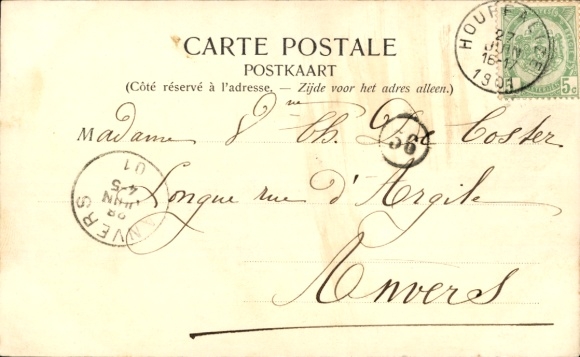 CARTE POSTALE
POSTKAART
(Côté réservé à l'adresse. — Zijde voor het adres alleen.)
Madame Vne Ch. De Coster
56
Longue rue d'Argile
Anvers
27
JUIN
16-17
5c
ANVERS
28
JUIN
4-5
01